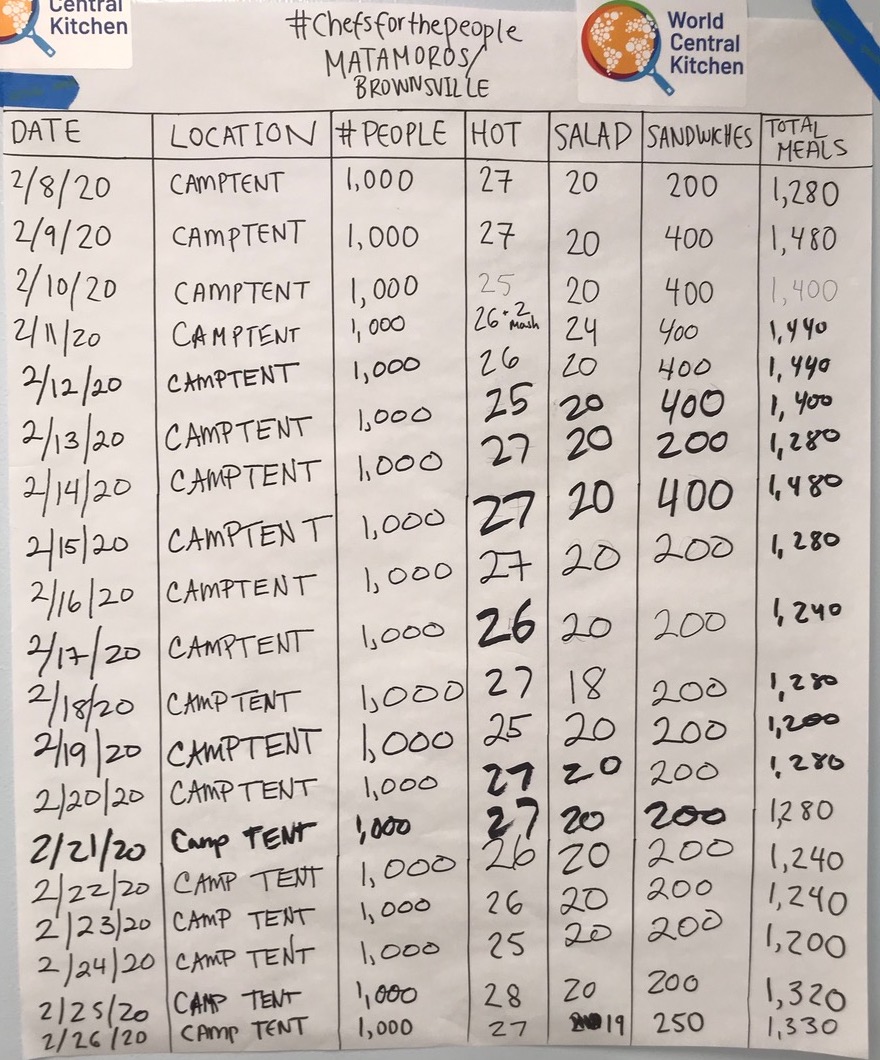 Central
Kitchen
#Chefsforthepeople
MATAMOROS/
BROWNSVILLE
World
Central
Kitchen
DATE LOCATION # PEOPLE HOT SALAD SANDWICHES TOTAL MEALS
2/8/20 CAMPTENT 1,000 27 20 200 1,280
2/9/20 CAMPTENT 1,000 27 20 400 1,480
2/10/20 CAMPTENT 1,000 25 20 400 1,400
2/11/20 CAMPTENT 1,000 26+2 mash 24 400 1,440
2/12/20 CAMPTENT 1,000 26 20 400 1,440
2/13/20 CAMPTENT 1,000 25 20 400 1,400
2/14/20 CAMPTENT 1,000 27 20 200 1,280
2/15/20 CAMPTENT 1,000 27 20 400 1,480
2/16/20 CAMPTENT 1,000 27 20 200 1,280
2/17/20 CAMPTENT 1,000 26 20 200 1,240
2/18/20 CAMP TENT 1,000 27 18 200 1,280
2/19/20 CAMPTENT 1,000 25 20 200 1,200
2/20/20 CAMPTENT 1,000 27 20 200 1,280
2/21/20 Camp TENT 1,000 27 20 200 1,280
2/22/20 CAMP TENT 1,000 26 20 200 1,240
2/23/20 CAMP TENT 1,000 26 20 200 1,240
2/24/20 CAMP TENT 1,000 25 20 200 1,200
2/25/20 CAMP TENT 1,000 28 20 200 1,320
2/26/20 CAMP TENT 1,000 27 19 250 1,330